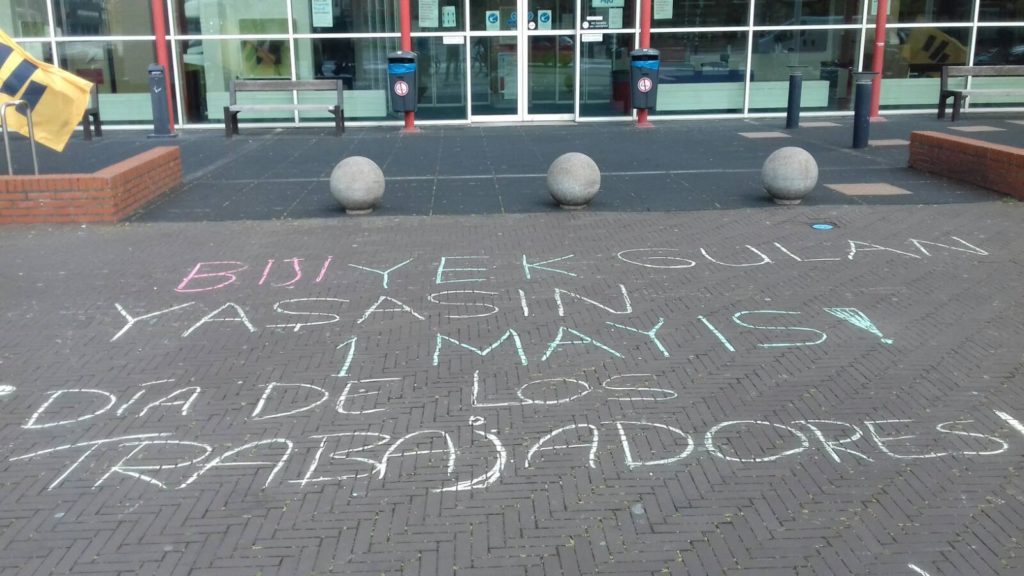 BIJI YEK GULAN
YAŞASIN
1 MAYIS!
DÍA DE LOS
TRABAJADORES!